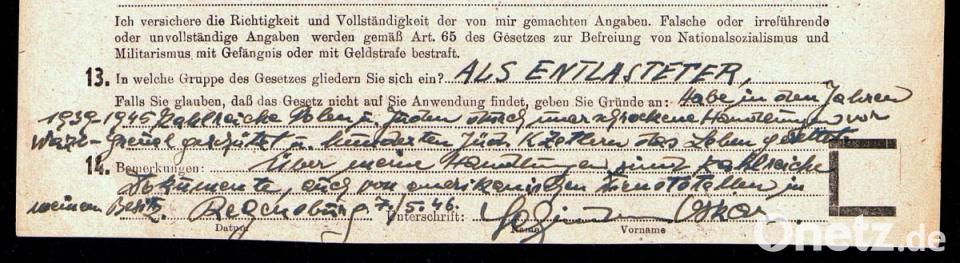 Ich versichere die Richtigkeit und Vollständigkeit der von mir gemachten Angaben. Falsche oder irreführende
oder unvollständige Angaben werden gemäß Art. 65 des Gesetzes zur Befreiung von Nationalsozialismus und
Militarismus mit Gefängnis oder mit Geldstrafe bestraft.
13. In welche Gruppe des Gesetzes gliedern Sie sich ein? ALS ENTLASTETER,
Falls Sie glauben, daß das Gesetz nicht auf Sie Anwendung findet, geben Sie Gründe an: Habe in den Jahren
1939-1945 zahlreiche Polen u. Juden durch unerschrockene Handlungen vor
Greuel geschützt u. hunderten jüd. das Leben gerettet
14. Bemerkungen: Über meine Handlungen sind zahlreiche
Dokumente, auch von amerikanischen Dienststellen in
meinem Besitz. Regensburg 7./5.46. Unterschrift: Oskar
Datum Name Vorname
Onetz.de